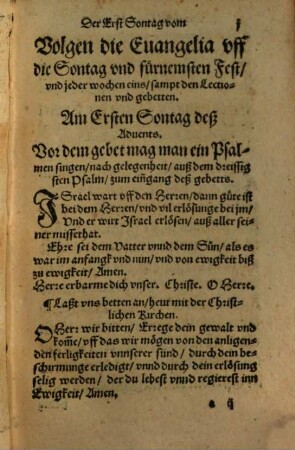 Der Erst Sontag vom
j
Volgen die Euangelia vff
die Sontag vnd fürnemsten Fest/
vnd jeder wochen eins/ sampt den Lectio-
nen vnd gebetten.
Am Ersten Sontag deß
Aduents.
Vor dem gebet mag man ein Psal-
men singen/ nach gelegenheit/ auß dem dreissig
sten Psalm/ zum eingang deß gebetts.
ISrael wart vff den Herren/ dann güte ist
bei dem Herren/ vnd vil erlösunge bei jm/
Vnd er wirt Israel erlösen/ auß aller sei-
ner missethat.
Ehre sei dem Vatter vnnd dem Sůn/ als es
war im anfangk vnd nun/ vnd von ewigkeit biß
zu ewigkeit/ Amen.
Herre erbarme dich vnser. Christe. O Herre.
¶ Laßt vns betten an/ heut mit der Christ-
lichen Kirchen.
O Herr wir bitten/ Errege dein gewalt vnd
kom̃e/ vff das wir mögen von den anligen-
den ferligkeiten vnnserer sünd/ durch dein be-
schirmunge erledigt/ vnnd durch dein erlösung
selig werden/ der du lebest vnnd regierest inn
Ewigkeit/ Amen.
a ij